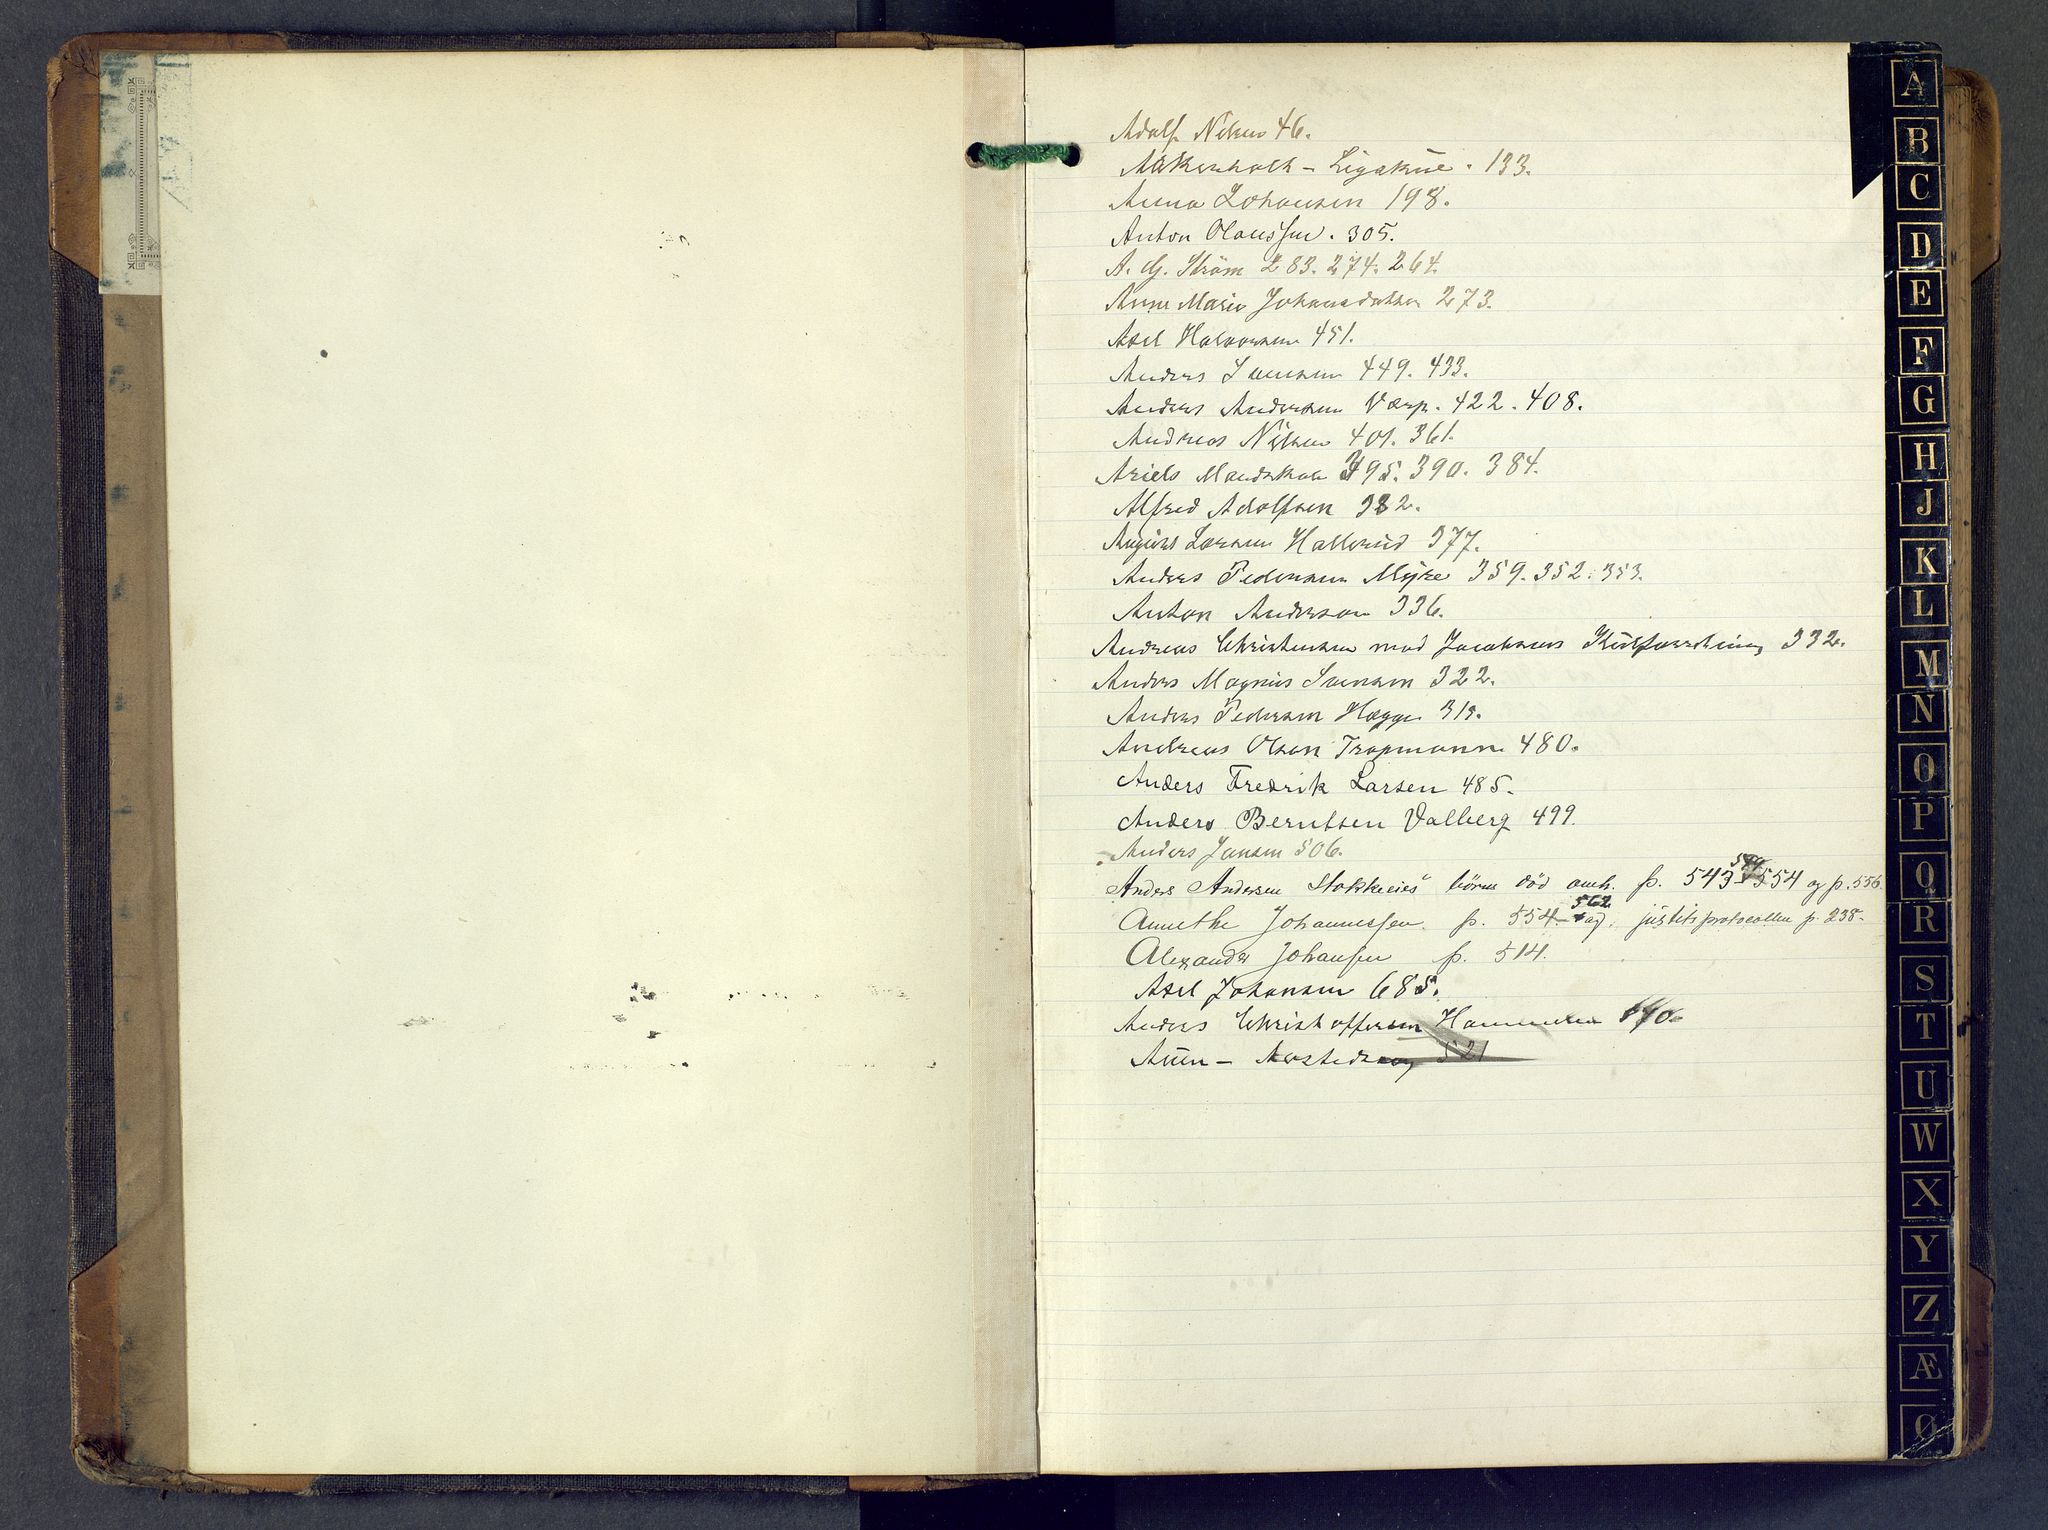 Adolf Nilsen 46.
Anna Johansen 198.
Anton Olaussen. 305.
A. G. Strøm 283. 274. 264.
Anne Marie Johannesdatter 273.
Axel Halvorsen 451.
Anders Svensen 449. 433.
Anders Andersen Værp. 422. 408.
Andreas Nilsen 401. 361.
Ariels Mandskab 395. 390. 384.
Alfred Adolfsen 382.
August Larsen Hallerud 377.
Anders Pedersen Myre 359. 352. 353.
Anton Anderson 336.
Andreas Christensen mod Jacobsens 332.
Anders Magnus Svensen 322.
Anders Pedersen Hægge 319.
Andreas Olsen Tropmann 480.
Anders Fredrik Larsen 485.
Anders Berntsen Valberg 499.
Anders Jansen 506.
Anders Andersen børns død p. 543 554 og p. 556
Annethe Johannessen p. 554. 562 og justitsprotocollen p. 238.
Alexander Johansen p. 514.
Axel Johansen 685.
Anders Christoffersen
521
A
B
C
D
E
F
G
H
J
K
L
M
N
O
P
Q
R
S
T
U
W
X
Y
Z
Æ
Ø